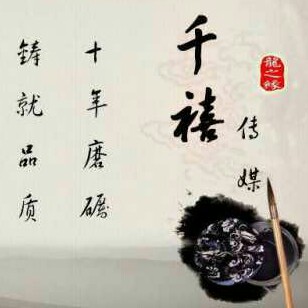 千禧
传媒
十年磨砺
铸就品质
龙之缘